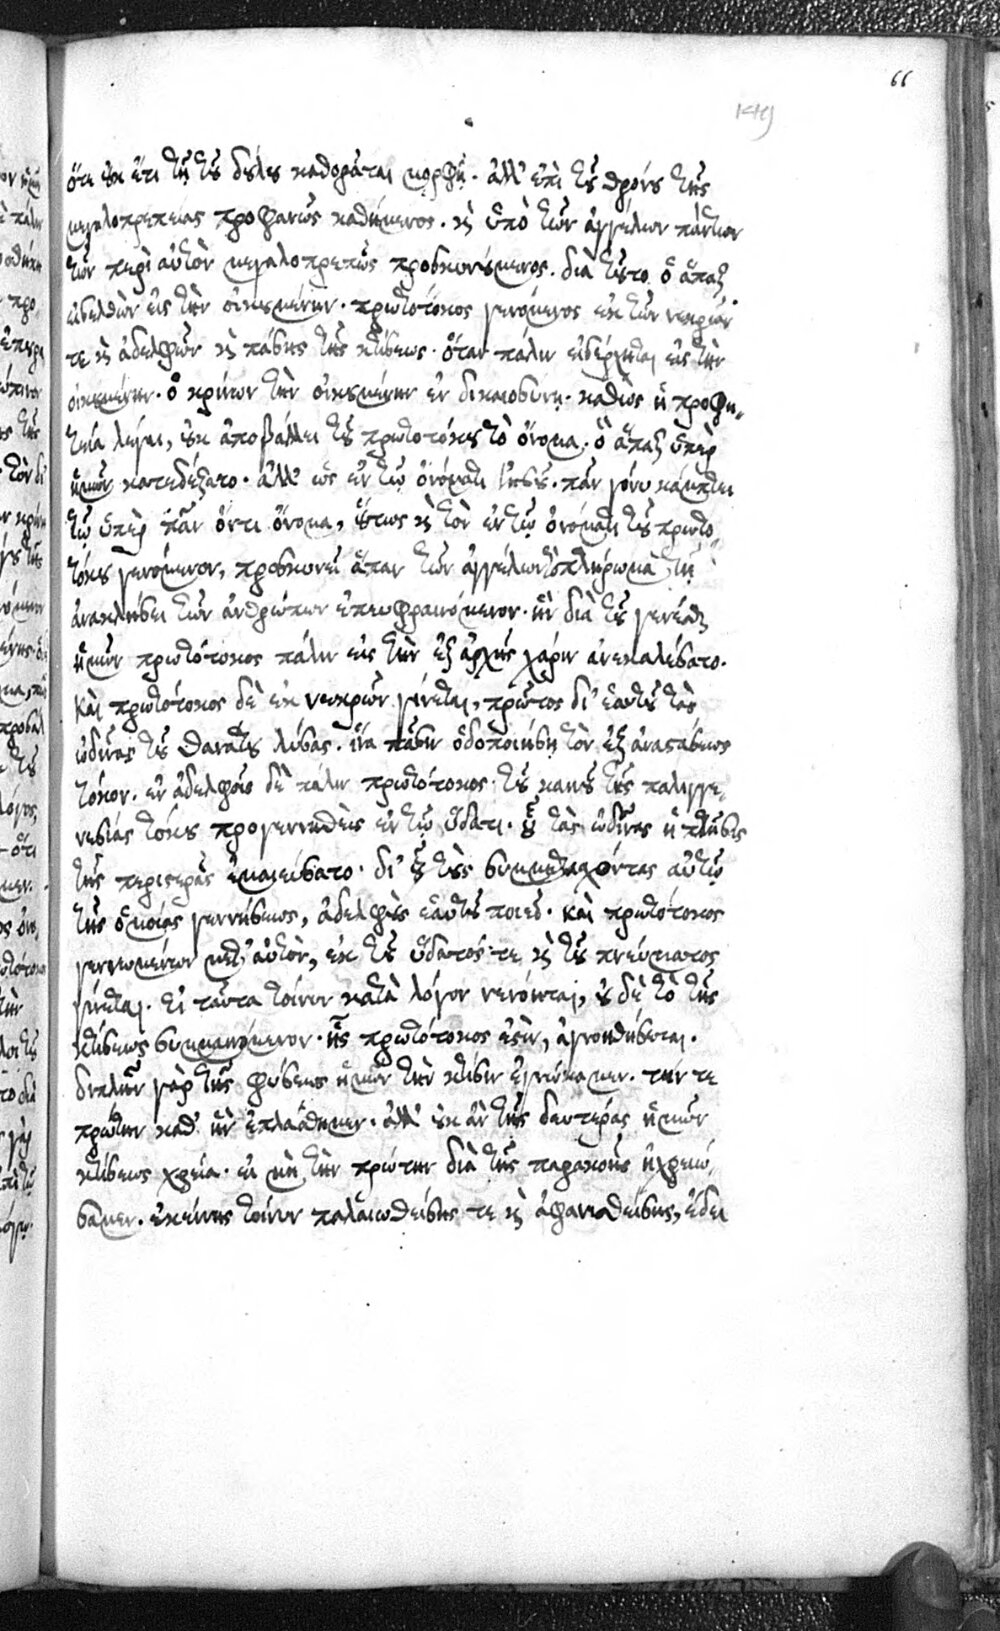 66
149
ὅτι οὐκ ἔτι τῇ τοῦ δούλου καθορᾶται μορφῇ. ἀλλ' ἐπὶ τοῦ θρόνου τῆς
μεγαλοπρεπείας προφανῶς καθήμενος. καὶ ὑπὸ τῶν ἀγγέλων πάντων
τῶν περὶ αὐτὸν μεγαλοπρεπῶς προσκυνούμενος. διὰ τοῦτο ὁ ἅπαξ
εἰσελθὼν εἰς τὴν οἰκουμένην. πρωτότοκος γενόμενος ἐκ τῶν νεκρῶν
τε καὶ ἀδελφῶν καὶ πάσης τῆς κτίσεως. ὅταν πάλιν εἰσέρχηται εἰς τὴν
οἰκουμένην. ὁ κρίνων τὴν οἰκουμένην ἐν δικαιοσύνῃ. καθὼς ἡ προφη-
τεία λέγει, οὐκ ἀποβάλλει τοῦ πρωτοτόκου τὸ ὄνομα. ὃ ἅπαξ ὑπὲρ
ἡμῶν κατεδέξατο. ἀλλ' ὡς ἐν τῷ ὀνόματι Ἰησοῦ. πᾶν γόνυ κάμπτει
τῷ ὑπὲρ πᾶν ὄντι ὄνομα, οὕτως καὶ τὸν ἐν τῷ ὀνόματι τοῦ πρωτο-
τόκου γενόμενον, προσκυνεῖ ἅπαν τῶν ἀγγέλων τὸ πλήρωμα τῇ
ἀνακλήσει τῶν ἀνθρώπων ἐπευφραινόμενον. ἣν διὰ τοῦ γενέσθαι
ἡμῶν πρωτότοκος πάλιν εἰς τὴν ἐξ ἀρχῆς χάριν ἀνεκαλέσατο.
Καὶ πρωτότοκος δὲ ἐκ νεκρῶν γίνεται, πρῶτος δι' ἑαυτοῦ τὰς
ὠδῖνας τοῦ θανάτου λύσας. ἵνα πᾶσιν ὁδοποιήσῃ τὸν ἐξ ἀναστάσεως
τόκον. ἐν ἀδελφοῖς δὲ πάλιν πρωτότοκος τοῦ καινοῦ τῆς παλιγγε-
νεσίας τόκου προγεννηθεὶς ἐν τῷ ὕδατι. οὗ τὰς ὠδῖνας ἡ πτῆσις
τῆς περιστερᾶς ἐμαιεύσατο. δι' οὗ τοὺς συμμετασχόντας αὐτῷ
τῆς ὁμοίας γεννήσεως, ἀδελφοὺς ἑαυτοῦ ποιεῖ. καὶ πρωτότοκος
γεννωμένων μετ' αὐτὸν, ἐκ τοῦ ὕδατός τε καὶ τοῦ πνεύματος
γίνεται. Εἰ ταῦτα τοίνυν κατὰ λόγον νενόηται, οὐδὲ τὸ τῆς
κτίσεως σημαινόμενον. ἧς πρωτότοκός ἐστιν, ἀγνοηθήσεται.
διπλῆν γὰρ τῆς φύσεως ἡμῶν τὴν κτίσιν ἐγνώκαμεν. τήν τε
πρώτην καθ' ἣν ἐπλάσθημεν. ἀλλ' οὐκ ἂν τῆς δευτέρας ἡμῶν
κτίσεως χρεία. εἰ μὴ τὴν πρώτην διὰ τῆς παρακοῆς ἠχρειώ-
σαμεν. ἐκείνης τοίνυν παλαιωθείσης τε καὶ ἀφανισθείσης, ἔδει